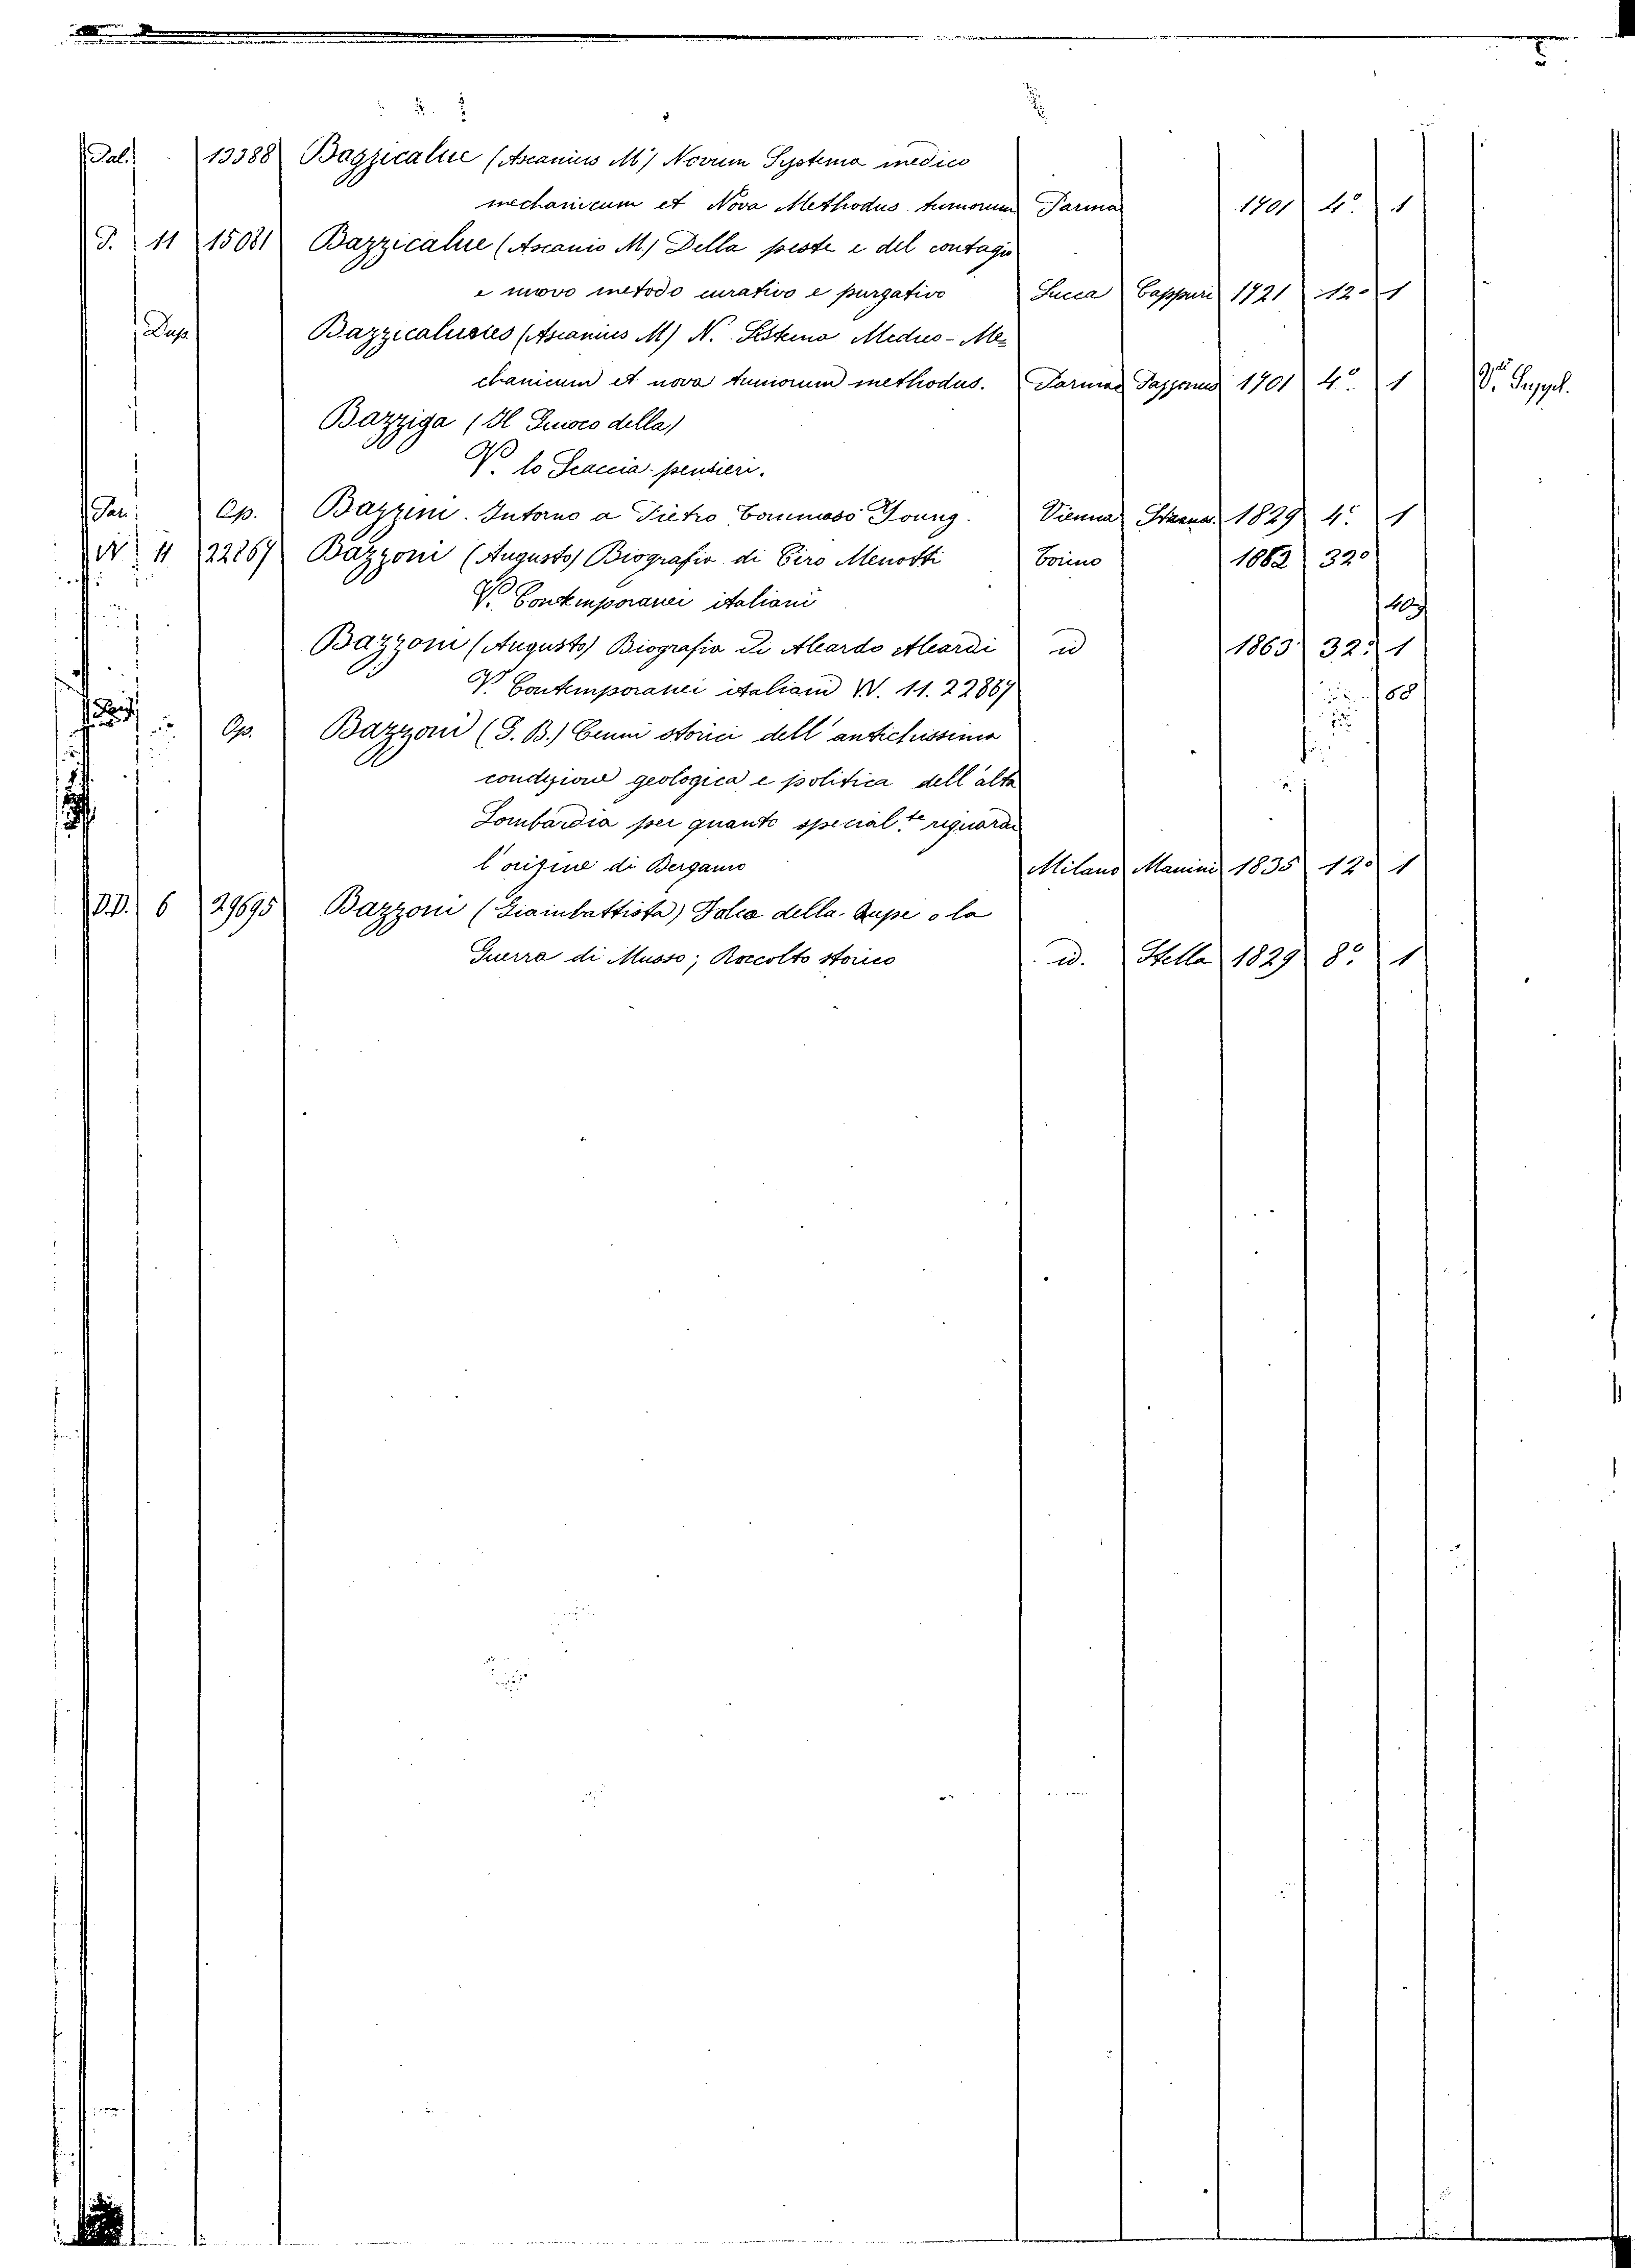 Pal. 13388 Bazzicalue (Ascanius M) Novum Systema medico
mechanicum et Nova Methodus tumorum Parma 1701 4º. 1
P. 11 15081 Bazzicalue (Ascanio M.) Della peste e del contagio
e nuovo metodo curativo e purgativo Lucca Cappuri 1721 12º 1
Dup. Bazzicaluves (Ascanius M) N. Sistema Medico-Me-
chanicum et nova tumorum methodus. Parmae 1701 4º. 1 V. Suppl.
Bazziga (Il Giuoco della)
V. lo Scaccia-pensieri.
Op. Bazzini. Intorno a Pietro Tommaso Young. Vienna 1829 4º. 1
W 11 22867 Bazzoni (Augusto) Biografia di Ciro Menotti Torino 1862 32º
V. Contemporanei italiani
Bazzoni (Augusto) Biografia di Aleardo Aleardi id 1863 32º. 1
V. Contemporanei italiani W. 11. 22867 68
Op. Bazzoni (G. B.) Cenni storici dell'antichissima
condizione geologica e politica dell'alta
Lombardia per quanto special.te riguarda
l'origine di Bergamo Milano Manini 1835 12º 1
DD. 6 29695 Bazzoni (Giambattista) Folco della Rupe o la
Guerra di Musso; Racconto storico id. Stella 1829 8º. 1